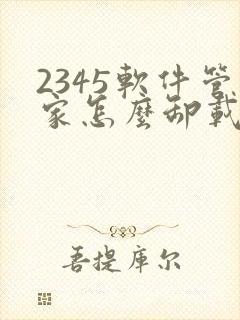 2345軟件管
家怎麼卸載
菩提库尔